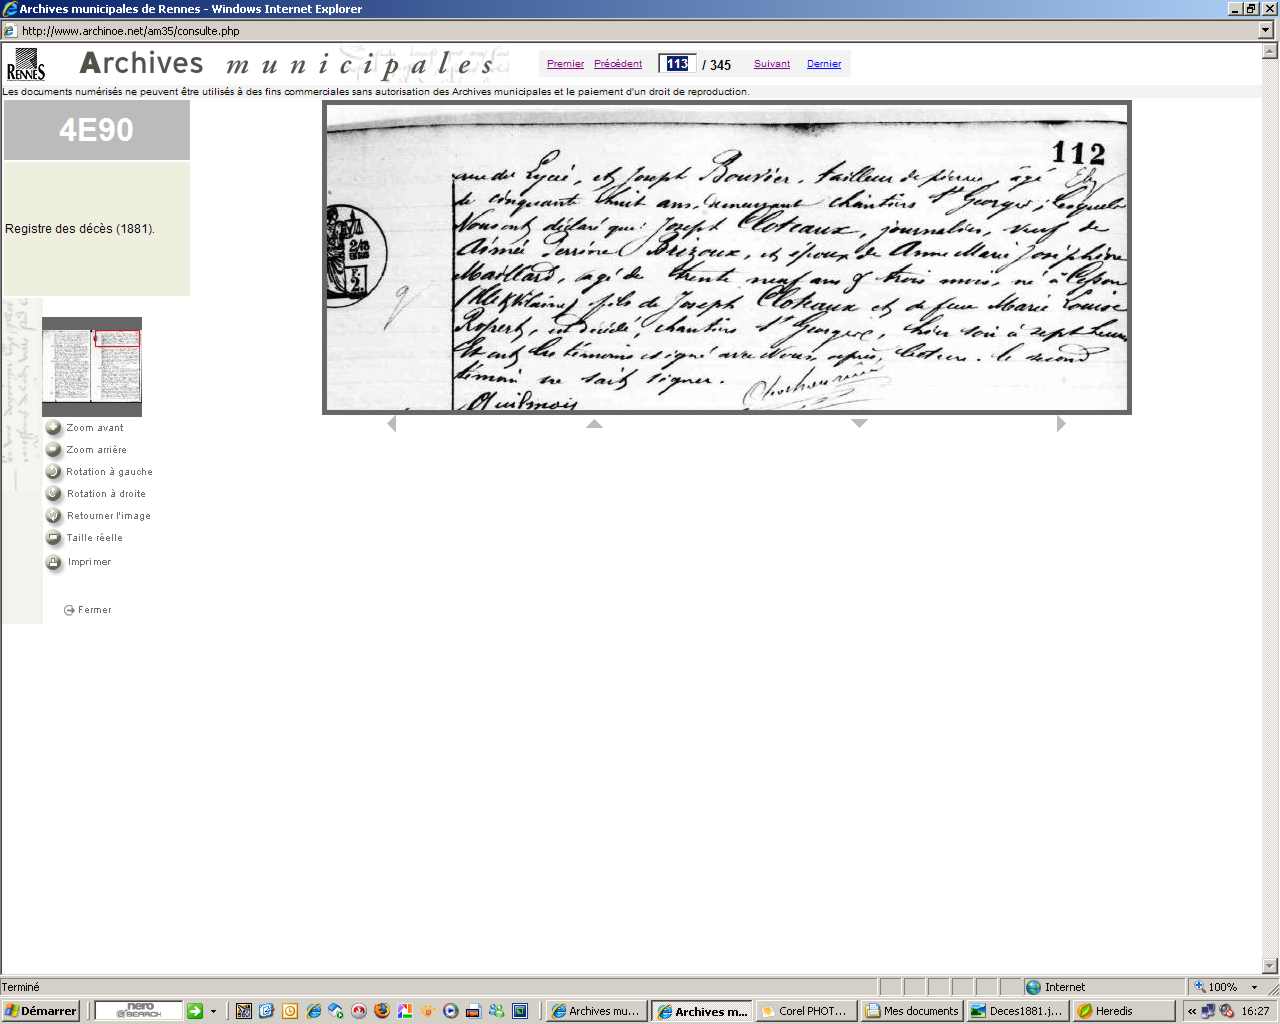 Archives municipales de Rennes - Windows Internet Explorer
http://www.archinoe.net/am35/consulte.php
RENNES
Archives municipales
Premier Précédent 113 / 345 Suivant Dernier
Les documents numérisés ne peuvent être utilisés à des fins commerciales sans autorisation des Archives municipales et le paiement d'un droit de reproduction.
4E90
Registre des décès (1881).
112
rue du Lycée, et Joseph Bouvier, tailleur de pierres, âgé
de cinquante huit ans, demeurant chantiers St Georges; lesquels
Nous ont déclaré que: Joseph Cloteaux, journalier, veuf de
Aimée Perrine Brizoux, et époux de Anne Marie Joséphine
Maillard, agé de trente neuf ans & trois mois, né à Cesson
(Ille & Vilaine) fils de Joseph Cloteaux et de feue Marie Louise
Ropert, est décédé, chantiers St Georges, hier soir à sept heures
Et ont les témoins signé avec Nous, après lecture. le second
témoin ne sait signer.
Zoom avant
Zoom arrière
Rotation à gauche
Rotation à droite
Retourner l'image
Taille réelle
Imprimer
Fermer
Terminé
Internet
100%
Démarrer
nero
SEARCH
Archives mu...
Archives m...
Corel PHOT...
Mes documents
Deces1881.j...
Heredis
16:27